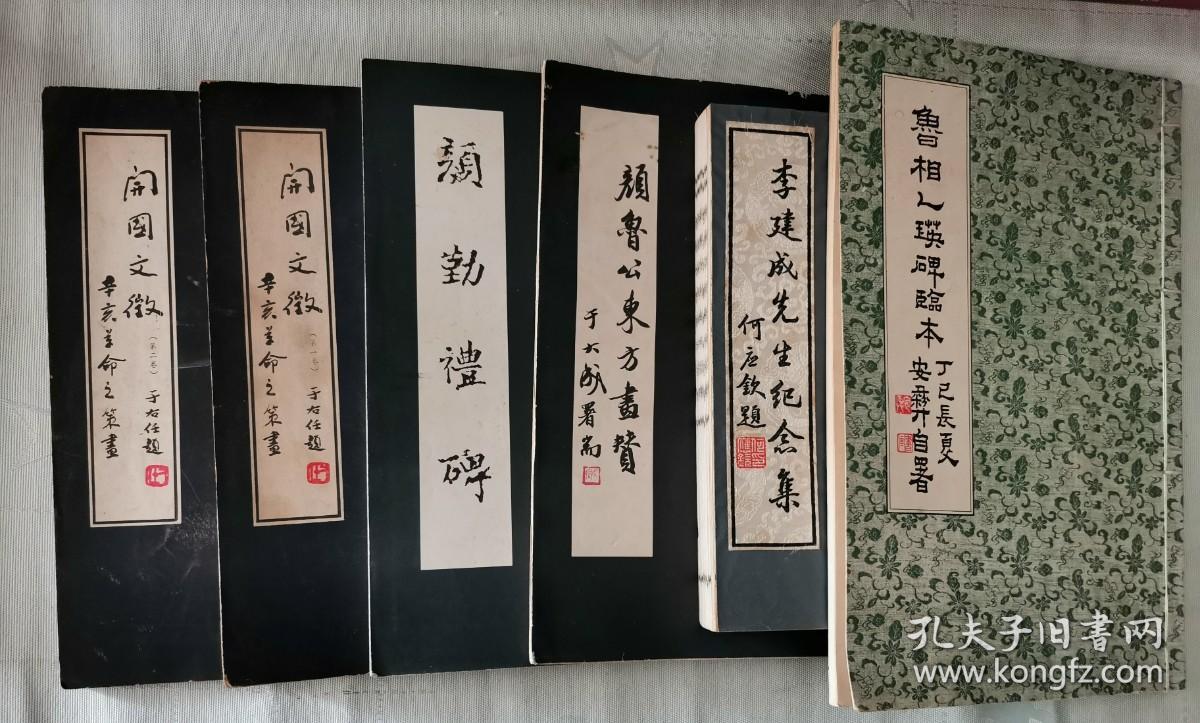 開國文徵
（第二卷）
辛亥革命之策畫
于右任題
開國文徵
（第一卷）
辛亥革命之策畫
于右任題
顏勤禮碑
顏魯公東方畫贊
于大成署耑
李建成先生紀念集
何應欽題
魯相乙瑛碑臨本
丁巳長夏
安彝自署
孔夫子旧書网
www.kongfz.com